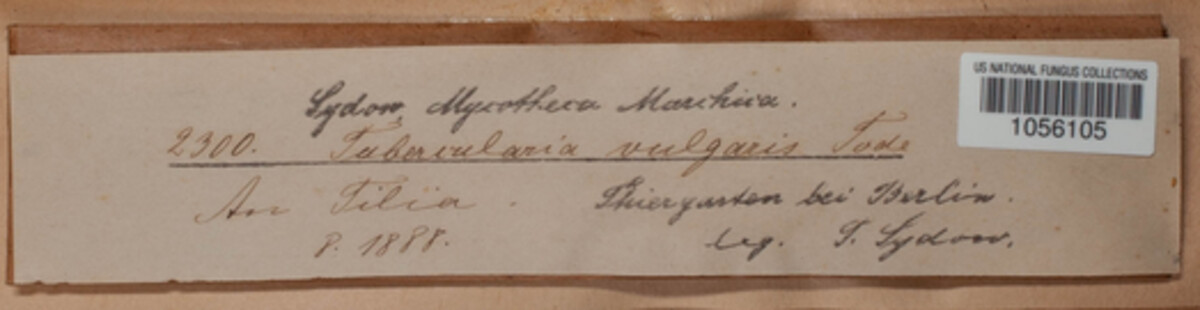 Sydow, Mycotheca Marchica.
2300. Tubercularia vulgaris Tode
An Tilia. Thiergarten bei Berlin.
8. 1888. leg. P. Sydow.
US NATIONAL FUNGUS COLLECTIONS
1056105